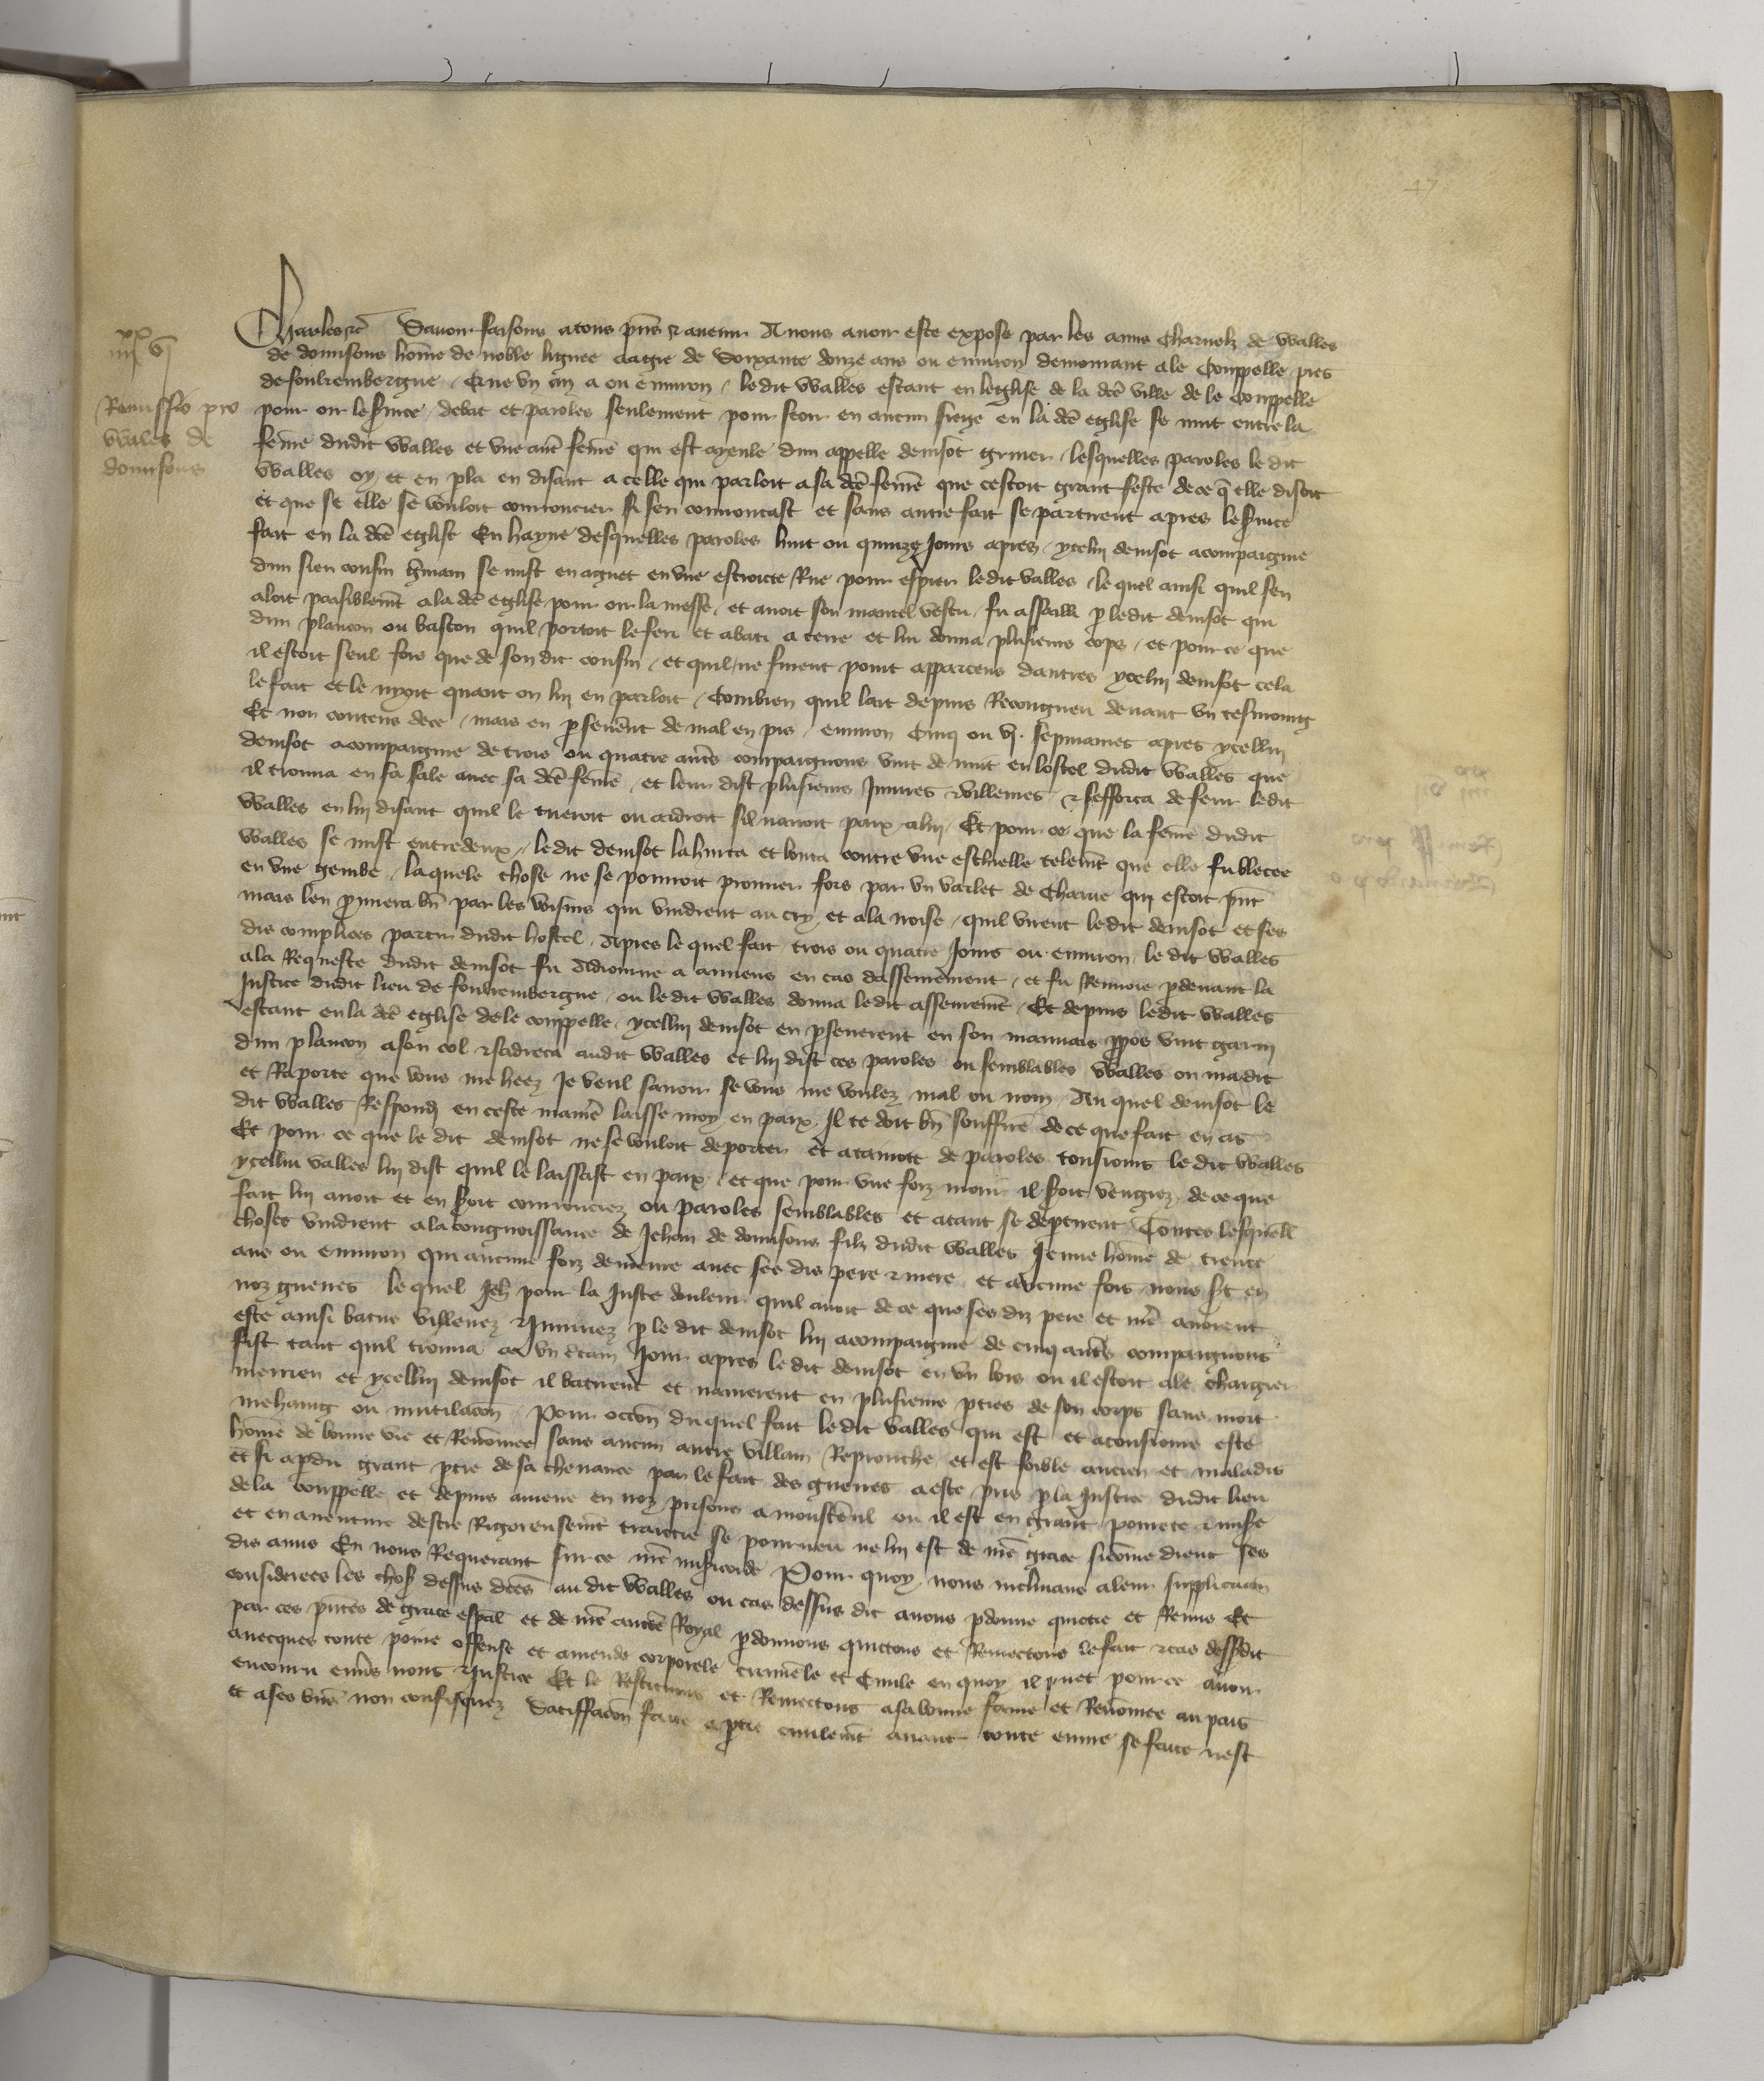 47
iiii xx vi
Remissio pro
Wales de
domisons
Charles etc Savoir faisons a tous pns & avenir A nous avoir este expose par les amis charnelz de Walles
de domisons home de noble lignee aagie de soixante douze ans ou environ demourant a le Couppelle pres
de foukembergue / Que un an a ou environ / le dit Walles estant en leglise de la dce ville de le Couppelle
pour oir le service / debat et paroles seulement pour seoir en aucun siege en la dce eglise se mut entre la
feme dudit Walles et une aut feme qui est ayeule dun appelle denisot gruier / lesquelles paroles le dit
Walles oy et en pla en disant a celle qui parloit a sa dce feme que cestoit grant feste de ce q elle disoit
et que se elle se vouloit couroucier si sen courroucast et sans autre fait se partirent apres le service
fait en la dce eglise En hayne desquelles paroles huit ou quinze jours apres / ycelui denisot acompaignie
dun sien cousin gmain se mist en aguet en une estroicte Rue pour espier ledit Valles / le quel ainsi quil sen
aloit paisiblemt a la dce eglise pour oir la messe / et avoit son mantel vestu / fu assailli p ledit denisot qui
dun plancon ou baston quil portoit le feri et abati a terre et lui donna plusieurs cops / et pour ce que
il estoit seul fors que de son dit cousin / et quil ne furent point apparceus dautres ycelui denisot cela
le fait et le nyoit quant on lui en parloit / Combien quil lait depuis Recongneu devant un tesmoing
Et non contens de ce / mais en pseverant de mal en pis / environ Cinq ou vi. sepmaines apres ycellui
denisot acompaignie de trois ou quatre autres compaignons vint de nuit en lostel dudit Walles que
il trouva en sa sale avec sa dce feme / et leur dist plusieurs Injures & villenies / & sefforca de ferir ledit
Walles en lui disant quil le tueroit ou ardroit sil navoit paix a lui / Et pour ce que la feme dudit
Walles se mist entredeux / ledit denisot la hurta et bouta contre une eschielle telemt que elle fu blecee
en une gembe / la quele chose ne se pourroit prouver fors par un varlet de Charue qui estoit pnt
mais len prouvera bn par les voisins qui vindrent au cry et a la noise / quil virent ledit denisot et ses
diz complices partir dudit hostel / Apres le quel fait trois ou quatre Jours ou environ le dit Walles
a la Requeste dudit denisot fu Adiourne a amiens en cas dasseurement / et fu Renvoie pdevant la
Justice dudit lieu de foukembergue / ou ledit Walles donna ledit asseuremt / Et depuis ledit Walles
estant en la dce eglise de le couppelle / ycellui denisot en pseverant en son mauvais ppos vint garni
dun plancon a son col & sadreca audit Walles et lui dist ces paroles ou semblables Walles on ma dit
et Raporte que vous me heez Je veul savoir se vous me voulez mal ou non / Au quel denisot le
dit Walles Respondi en ceste maniere laisse moy en paix / Il te doit bn souffire de ce que fait en as
Et pour ce que le dit denisot ne se vouloit deporter et atainoit de paroles tousiours le dit Walles
ycellui Valles lui dist quil le laissast en paix / et que pour une foiz morir il seroit vengiez / de ce que
fait lui avoit et en seroit courrouciez ou paroles semblables et atant se deptirent Toutes lesquelles
choses vindrent a la congnoissance de Jehan de domisons filz dudit Walles Jeune home de trente
ans ou environ qui aucune foiz demeure avec ses diz pere & mere et aucune fois nous sert en
noz guerres le quel Jeh pour la Juste douleur quil avoit de ce que ses diz pere et mere avoient
este ainsi batuz villenez & Injuriez p le dit denisot lui acompaignie de cinq autres compaignons
fist tant quil trouva a un certain Jour apres le dit denisot en un bois ou il estoit ale chargier
merrien et ycellui denisot il batirent et navrerent en plusieurs pties de son corps sans mort
mehaing ou mutilacon / Pour occon du quel fait le dit Valles qui est et a tousiours este
home de bonne vie et Renomee sans aucun autre villain Reprouche et est foible ancien et maladis
et si a pdu grant ptie de sa chevance par le fait des guerres a este pris p la Justice dudit lieu
de la Couppelle et depuis amene en noz prisons a monsteruel ou il est en grant povrete & misere
et en aventure destre Rigoreusemt traictie se pourveu ne lui est de nre grace sicome dient ses
diz amis En nous Requerant sur ce nre misericorde Pour quoy nous inclinans a leur supplicacion
considerees les choses dessus dces au dit Walles ou cas dessus dit avons pdonne quictie et Remis Et
par ces pntes de grace espal et de nre aucte Royal pdonnons quictons et Remectons le fait & cas dessusdit
avecques toute poine offense et amende corporele criminele et Civile en quoy il puet pour ce avoir
encouru envers nous & Justice Et le Restituons et Remectons a sa bonne fame et Renomee au pais
et a ses biens non confisquez Satisfacon faite a ptie civilemt avant toute euvre se faite nest